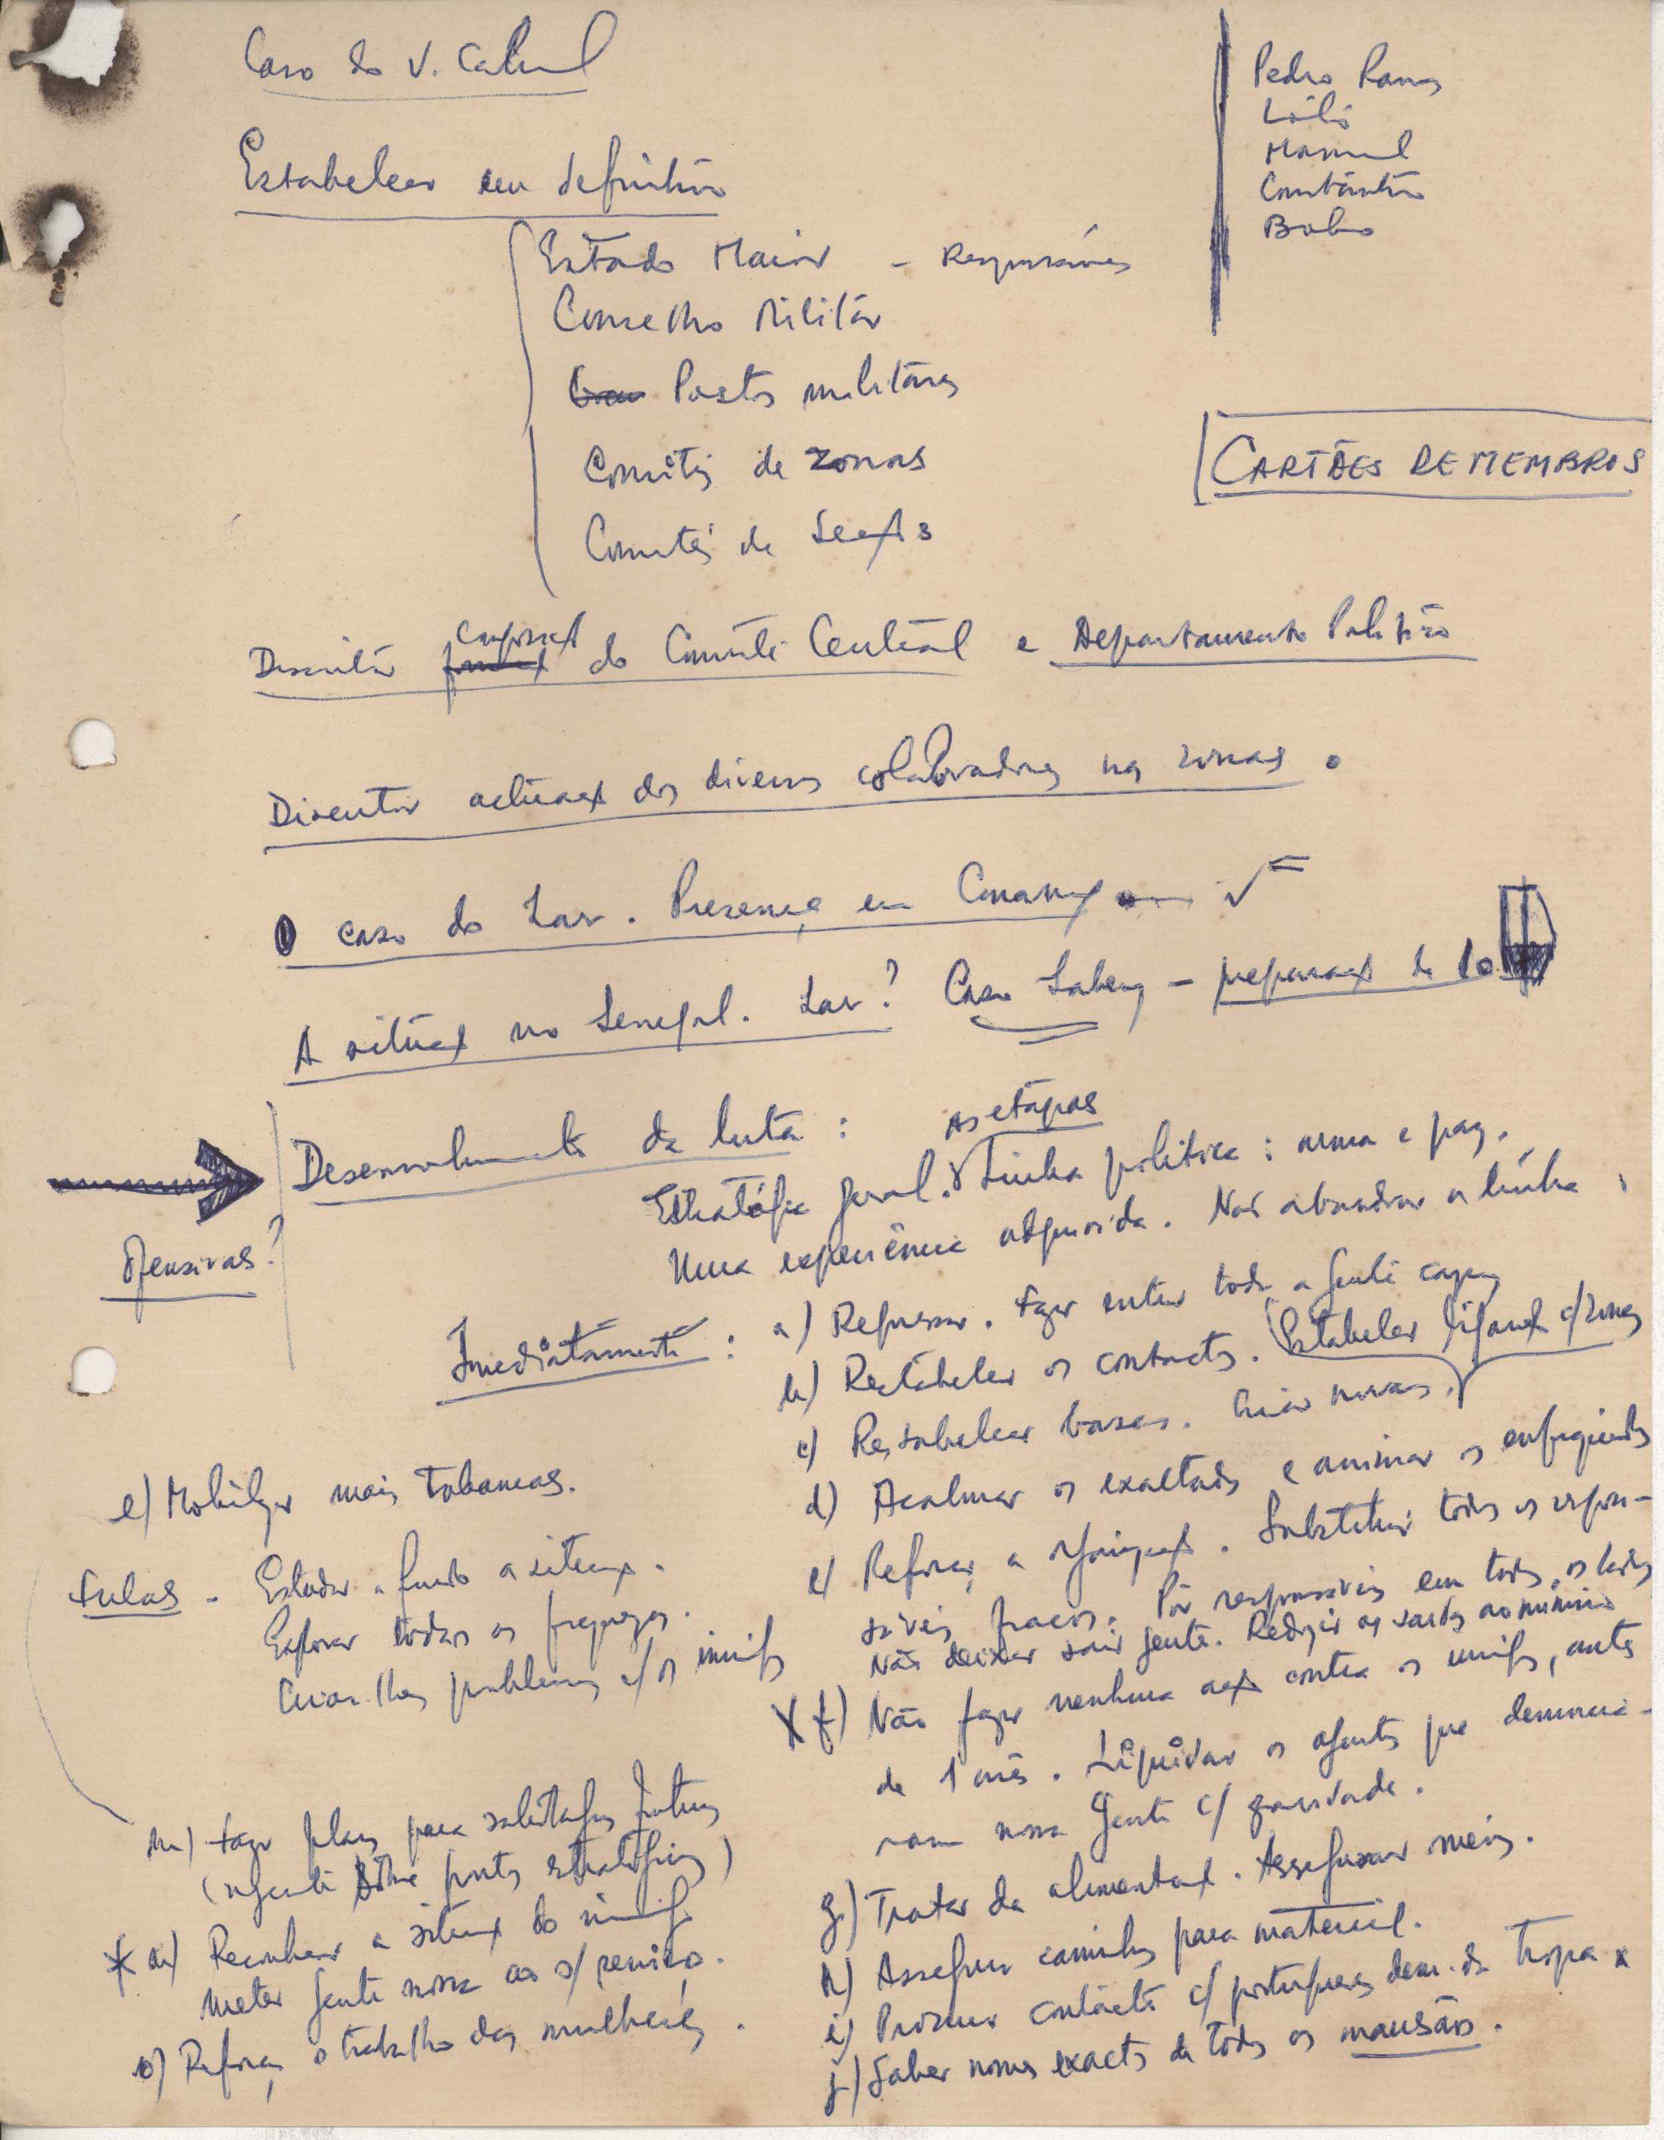 Caso do V. Cabral
Pedro Ramos
Lulú
Manuel
Constantino
Bobo
Estabelecer em definitivo
Estado Maior - Responsáveis
Conselho Militar
Postos militares
Comités de zonas
Comités de Secção
CARTÕES DE MEMBROS
Discutir composição do Comité Central e Departamento Político
Discutir actuação dos diversos colaboradores nas zonas.
O caso do Lar. Presença em Conakry
A situação no Senegal. Lar? Caso - preparação de 10
Desenvolvimento da luta:
As etapas
Estratégia geral. Linha política: arma e paz.
Uma experiência adquirida. Não abandonar a linha
Ofensivas?
Imediatamente:
a) Regressar. Fazer entrar toda a gente capaz
b) Restabelecer os contactos. Estabelecer ligações c/ zonas
c) Restabelecer bases. Criar novas.
d) Acalmar os exaltados e animar os enfraquecidos
e) Reforçar a organização. Substituir todos os respon-
sáveis fracos. Pôr responsáveis em todos os lados
Não deixar sair gente. Reduzir as saídas ao mínimo
f) Não fazer nenhuma acção contra os inimigos, antes
de 1 mês. Liquidar os agentes que denuncia-
ram nossa gente c/ gravidade.
g) Tratar da alimentação. Assegurar meios.
h) Assegurar caminhos para material.
i) Procurar contacto c/ portugueses dem. da tropa
j) Saber nomes exactos de todos os mausões.
l) Mobilizar mais tabancas.
Fulas - Estudar a fundo a situação.
Explorar todas as fraquezas.
Criar-lhes problemas c/ os inimigos
m) Fazer planos para sabotagens futuras
(urgente sobre pontos estratégicos)
n) Reconhecer a situação do inimigo.
Meter gente nossa ao s/ serviço.
o) Reforçar o trabalho das mulheres.